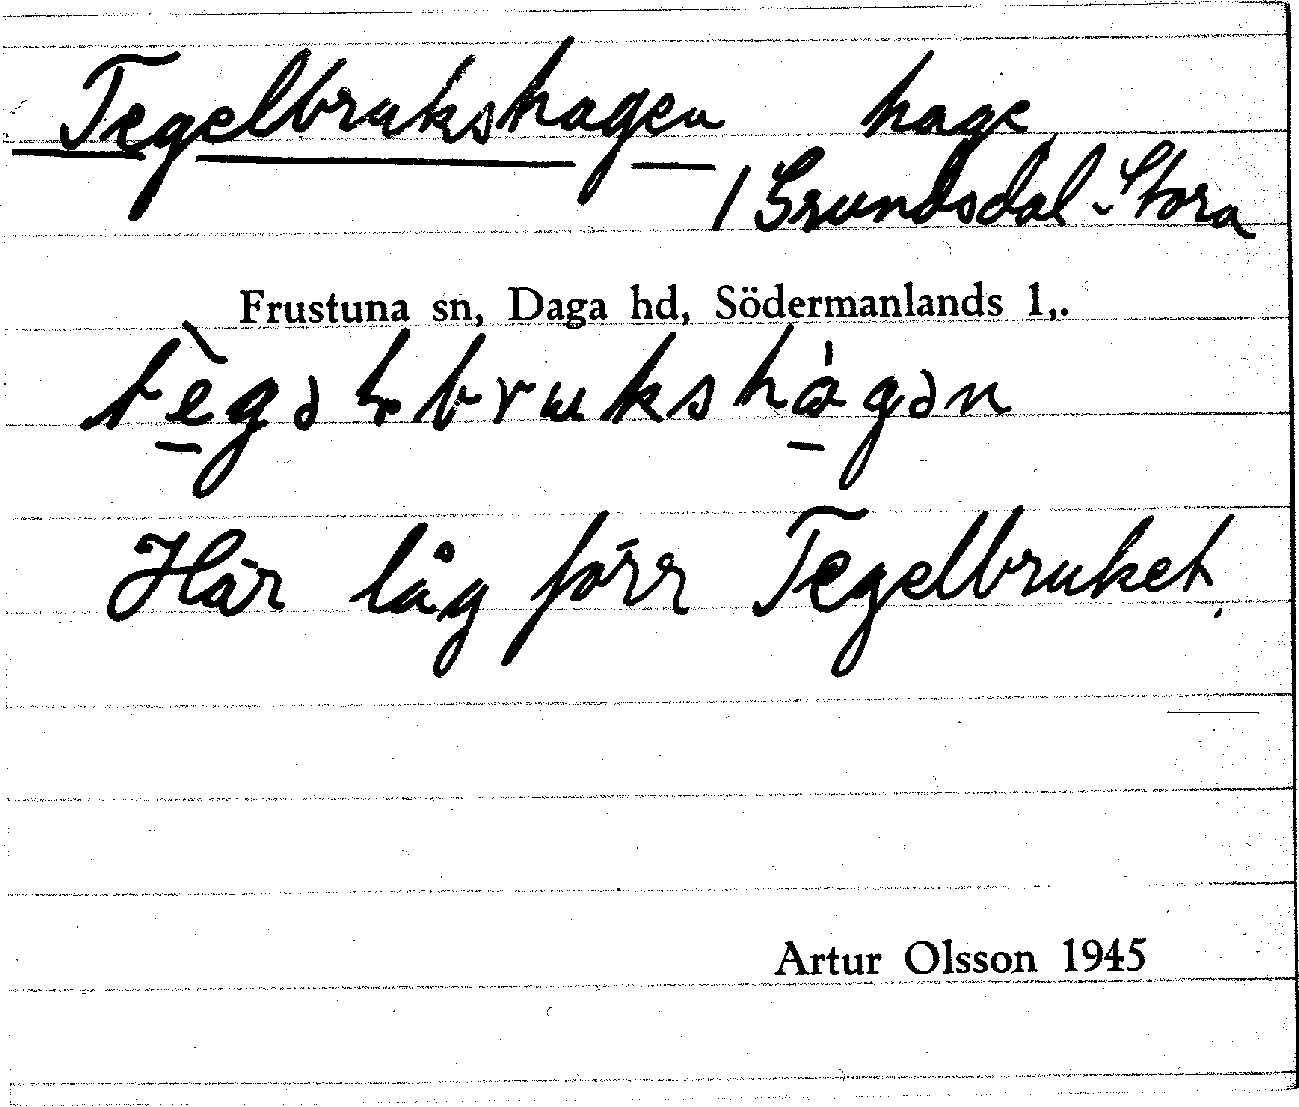 Tegelbrukshagen hage
/ Grundsdal - Stora
Frustuna sn, Daga hd, Södermanlands l,.
tè̱gəlbrukshà̱gən
Här låg förr Tegelbruket.
Artur Olsson 1945